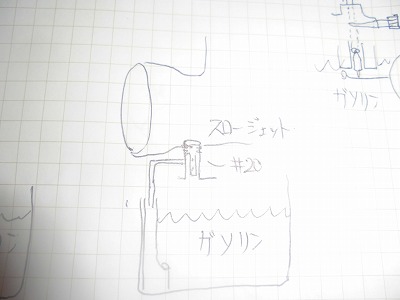 ガソリン
スロージェット
#20
ガソリン